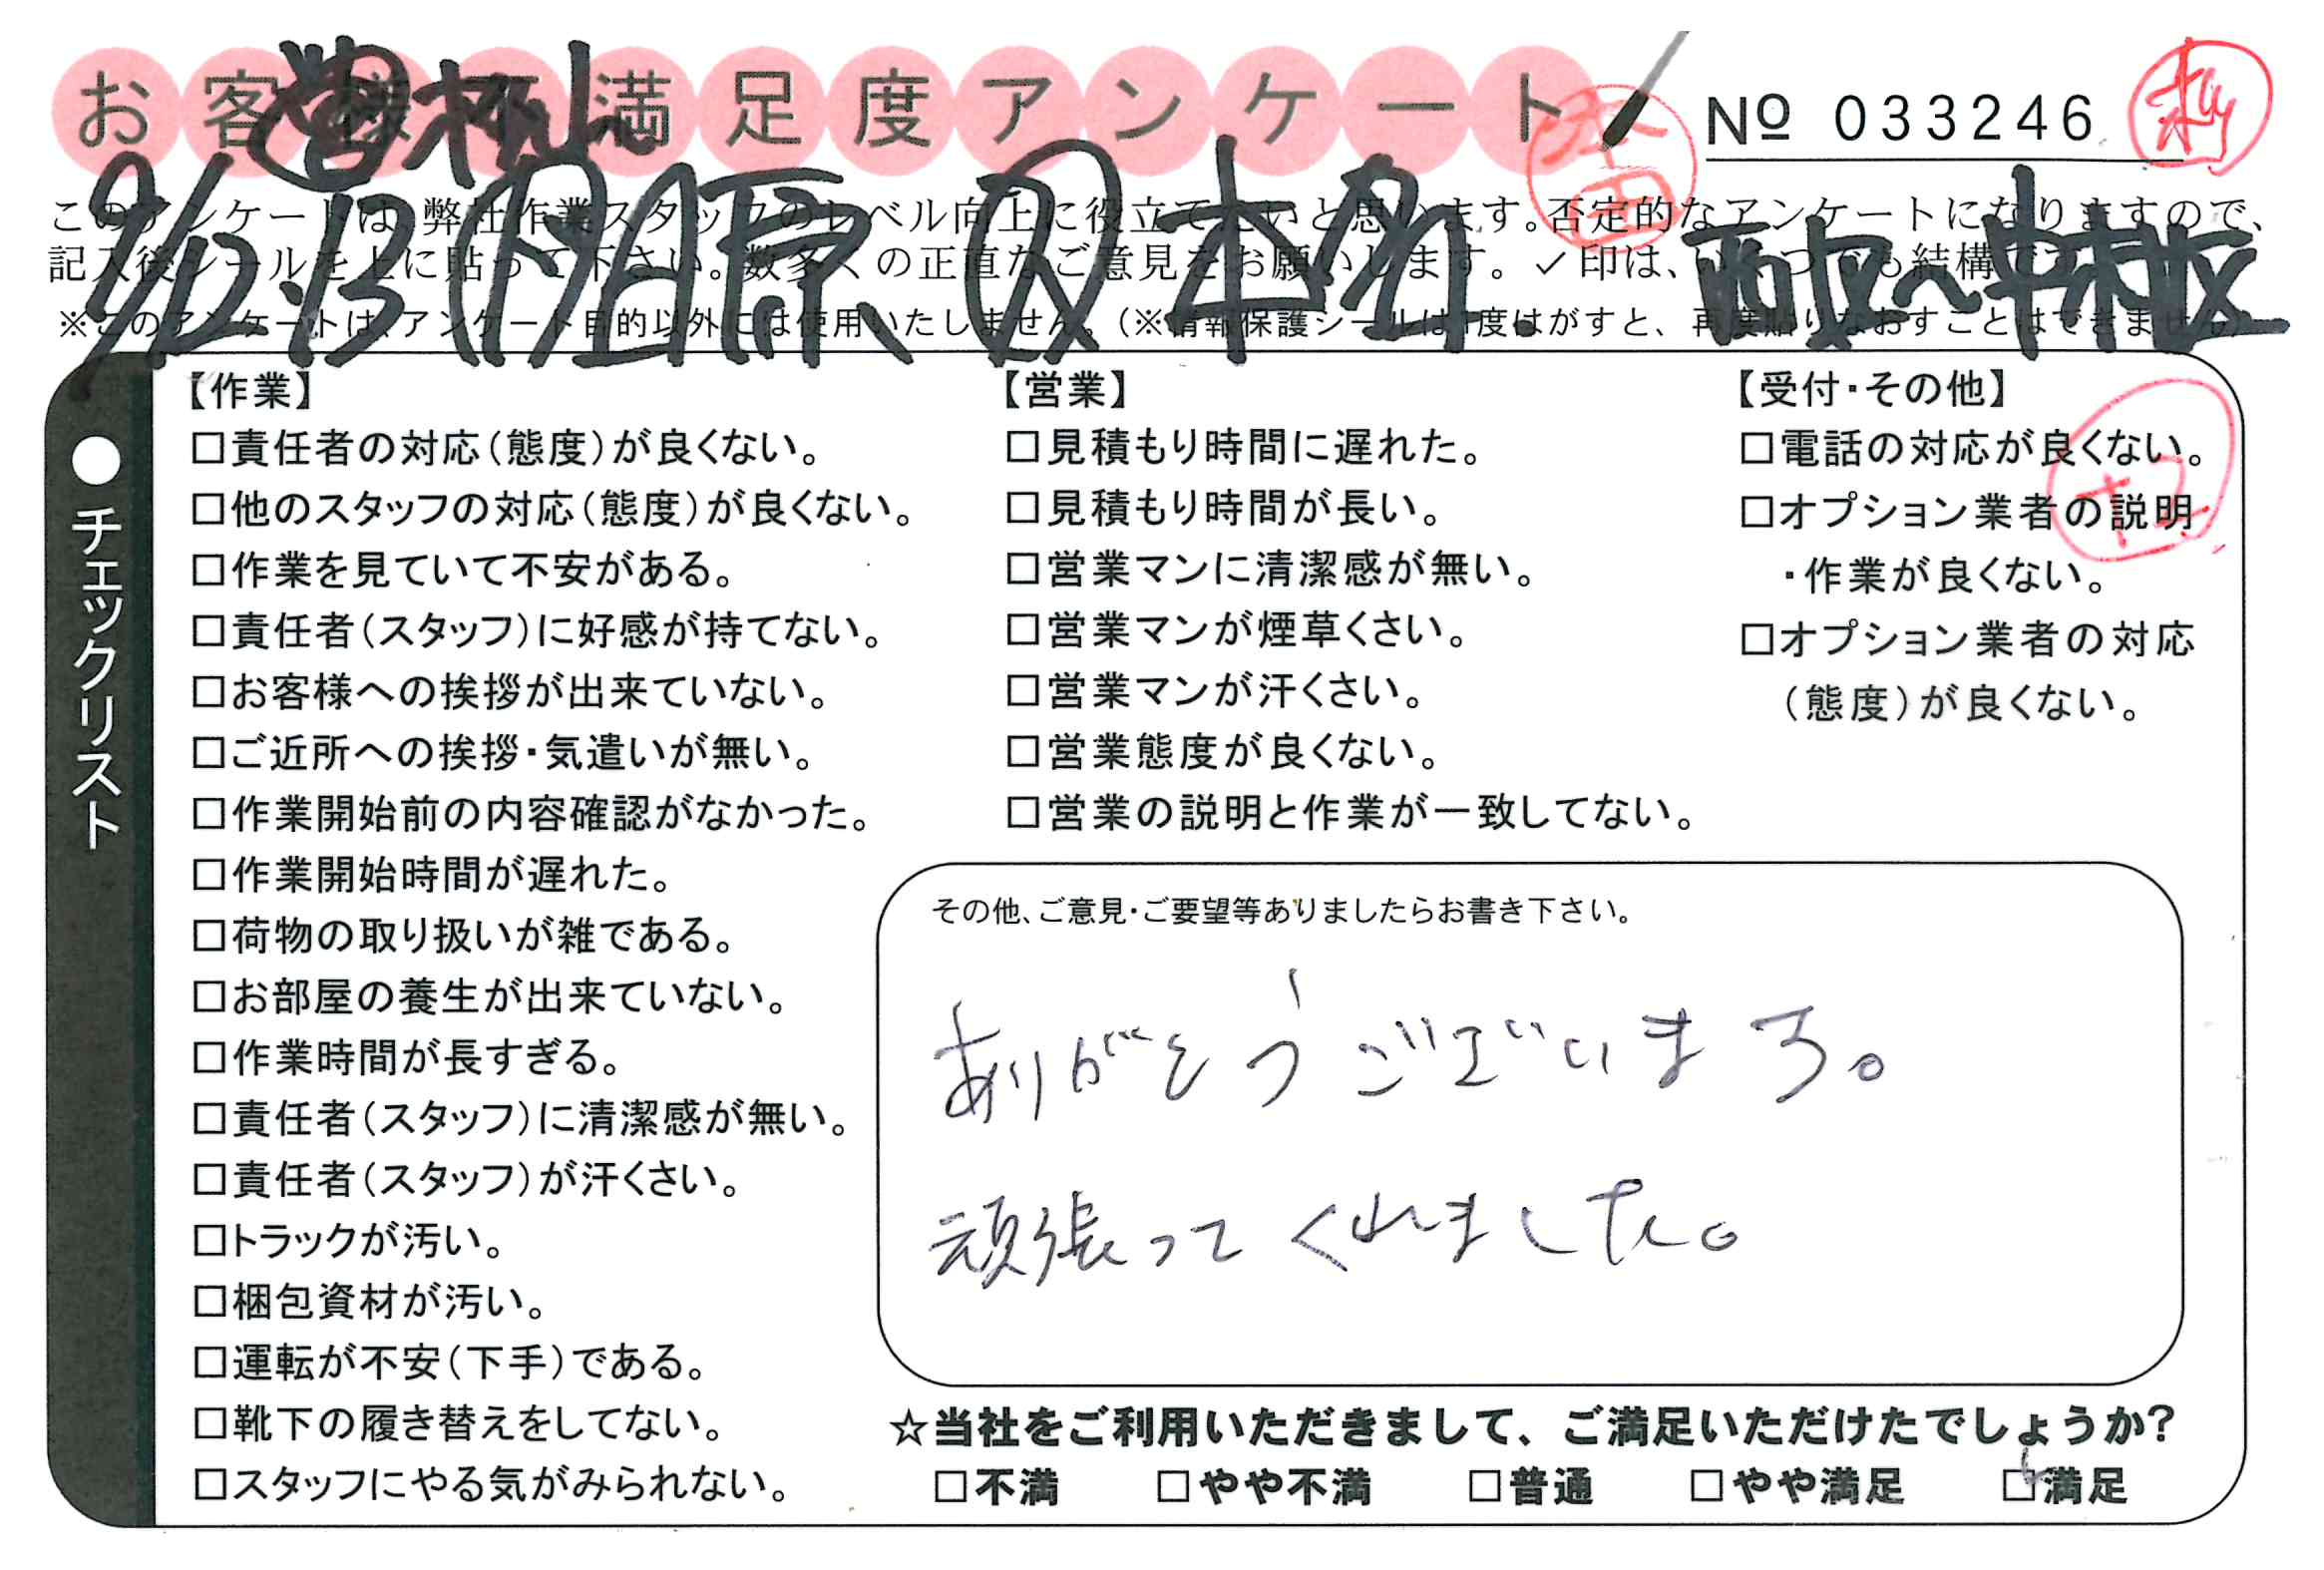 お客様不満足度アンケート
№ 033246
このアンケートは、弊社作業スタッフのレベル向上に役立てたいと思います。否定的なアンケートになりますので、
記入後シールを上に貼って下さい。数多くの正直なご意見をお願いします。✓印は、いくつでも結構です
※このアンケートは、アンケート目的以外には使用いたしません。(※情報保護シールは1度はがすと、再度貼りなおすことはできません)
9/12.13
西区〜中村区
●チェックリスト
【作業】
□責任者の対応(態度)が良くない。
□他のスタッフの対応(態度)が良くない。
□作業を見ていて不安がある。
□責任者(スタッフ)に好感が持てない。
□お客様への挨拶が出来ていない。
□ご近所への挨拶・気遣いが無い。
□作業開始前の内容確認がなかった。
□作業開始時間が遅れた。
□荷物の取り扱いが雑である。
□お部屋の養生が出来ていない。
□作業時間が長すぎる。
□責任者(スタッフ)に清潔感が無い。
□責任者(スタッフ)が汗くさい。
□トラックが汚い。
□梱包資材が汚い。
□運転が不安(下手)である。
□靴下の履き替えをしてない。
□スタッフにやる気がみられない。
【営業】
□見積もり時間に遅れた。
□見積もり時間が長い。
□営業マンに清潔感が無い。
□営業マンが煙草くさい。
□営業マンが汗くさい。
□営業態度が良くない。
□営業の説明と作業が一致してない。
【受付・その他】
□電話の対応が良くない。
□オプション業者の説明
・作業が良くない。
□オプション業者の対応
(態度)が良くない。
+2
その他、ご意見・ご要望等ありましたらお書き下さい。
ありがとうございまう。
頑張ってくれました。
☆当社をご利用いただきまして、ご満足いただけたでしょうか?
□不満 □やや不満 □普通 □やや満足 □満足